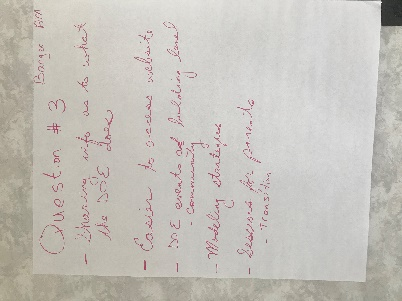 Bangor AM
Question #3
- Sharing info as to what
the DOE does
- Easier to access website
- DOE events at building level
- community
- Modeling strategies
- Sessions for parents
- Transition